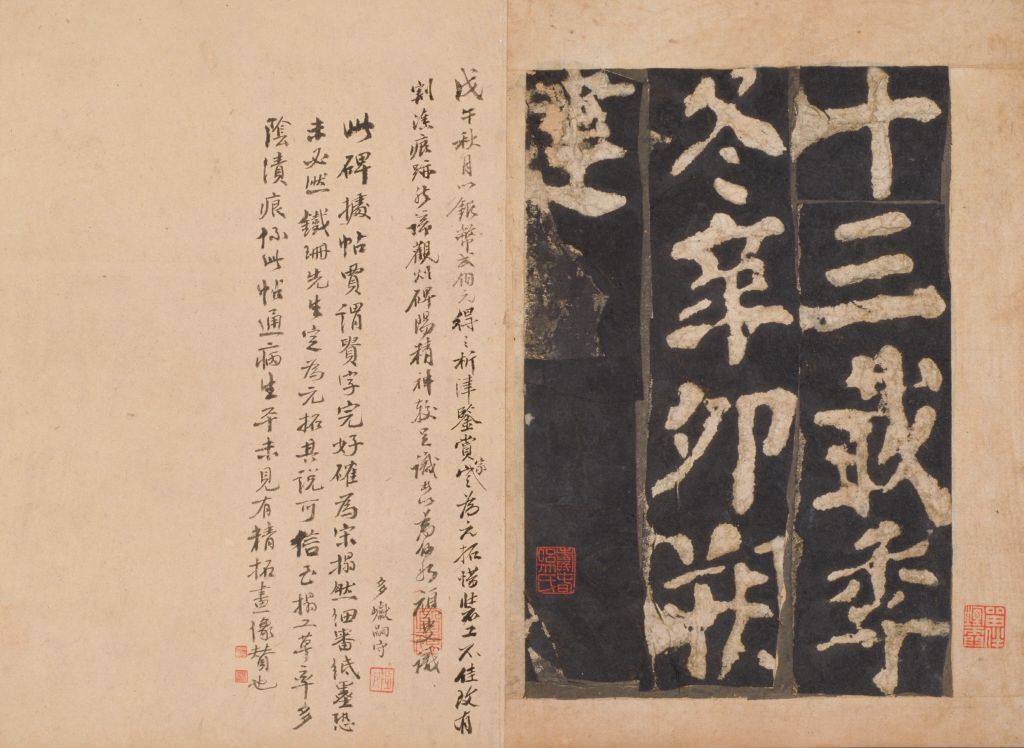 十三載季
冬辛卯朔
建
戊午秋月以銀幣弍佰元得之析津鑒賞家定為元拓惜裝工不佳致有
割塗痕跡然諦觀此碑陽精神較足識
多巘嗣守
此碑據帖賈謂賢字完好確為宋搨然細審紙墨恐
未必然鐵珊先生定為元拓其說可信至搨工草率多
陰漬痕係此帖通病生平未見有精拓畫像贊也